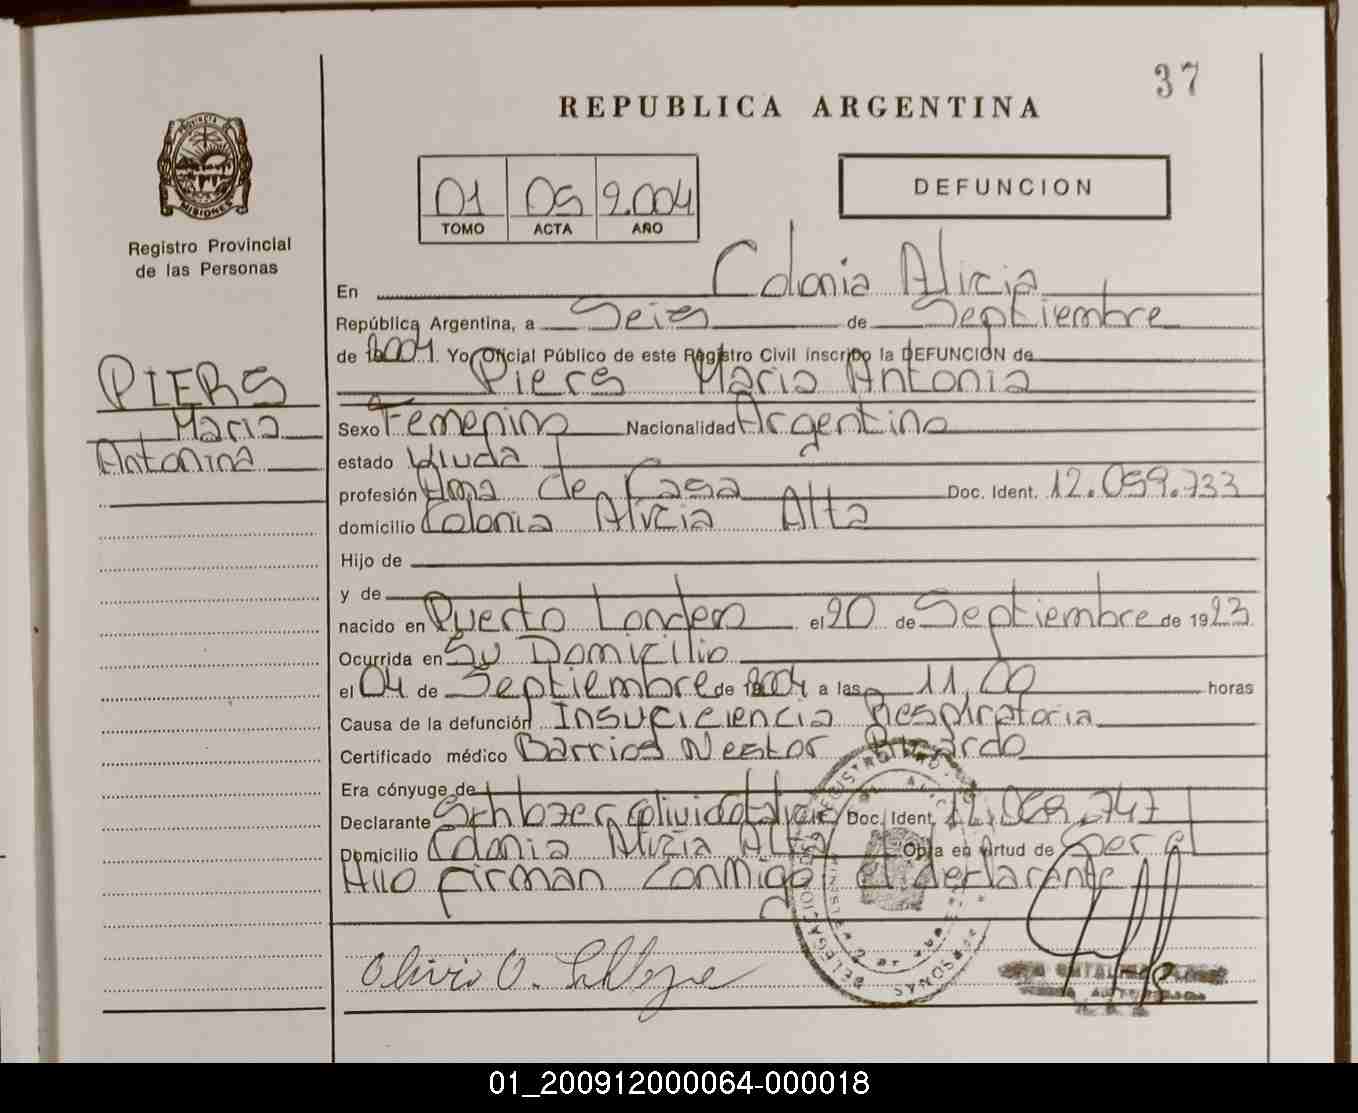 37
REPUBLICA ARGENTINA
PROVINCIA DE
MISIONES
Registro Provincial
de las Personas
01 05 2.004
TOMO ACTA AÑO
DEFUNCION
En Colonia Alicia
República Argentina, a Seis de Septiembre
de 2004. Yo, Oficial Público de este Registro Civil inscribo la DEFUNCION de
Piers Maria Antonia
PIERS
Maria
Antonina
Sexo Femenino Nacionalidad Argentina
estado Viuda
profesión Ama de Casa Doc. Ident. 12.059.733
domicilio Colonia Alicia Alta
Hijo de
y de
nacido en Puerto Londero el 20 de Septiembre de 1923
Ocurrida en Su Domicilio
el 04 de Septiembre de 2004 a las 11,00 horas
Causa de la defunción Insuficiencia Respiratoria
Certificado médico Barrios Nestor Ricardo
Era cónyuge de
Declarante Doc. Ident.
Domicilio Colonia Alicia Alta Obra en virtud de Ser el
Hijo firman conmigo el declarante
Olivio O.
01_200912000064-000018